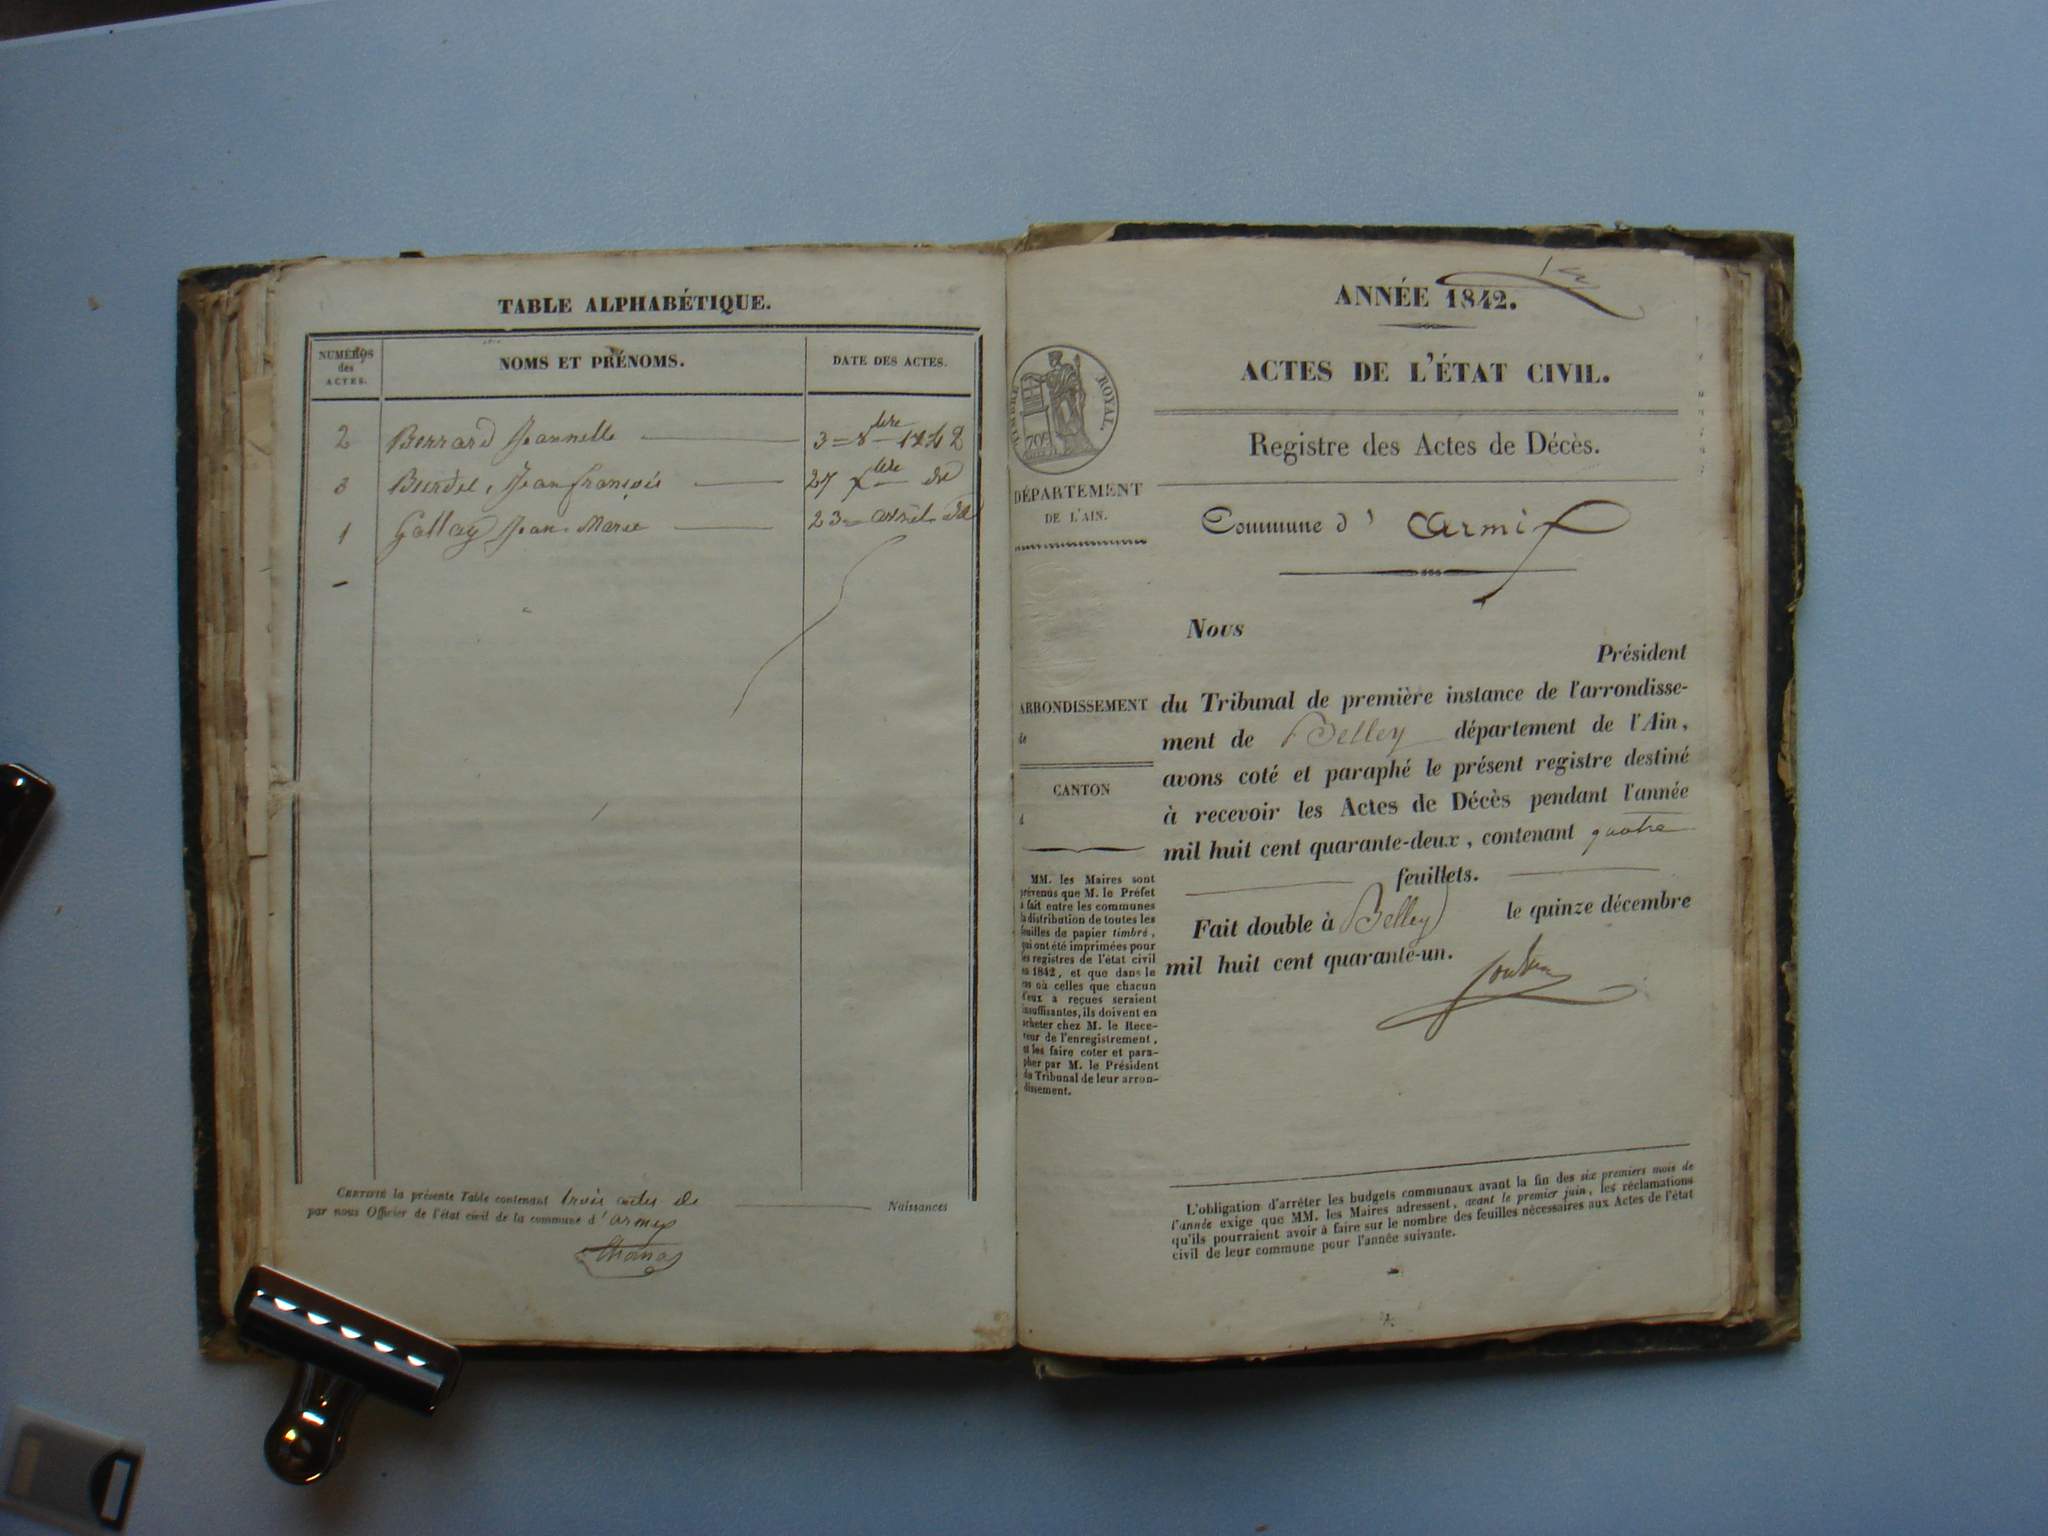 TABLE ALPHABÉTIQUE.
NUMÉROS
des
ACTES.
NOMS ET PRÉNOMS.
DATE DES ACTES.
2 Berrard Jeannette 3 = 8bre 1842
3 Burdel, Jean françois 27 Xbre de
1 Gallay Jean-Marie 23 = avril de
CERTIFIÉ la présente Table contenant trois actes de Naissances
par nous Officier de l'état civil de la commune d' armix
ANNÉE 1842.
ACTES DE L'ÉTAT CIVIL.
Registre des Actes de Décès.
TIMBRE ROYAL
70c
DÉPARTEMENT
DE L'AIN.
Commune d' Armix
Nous
Président
du Tribunal de première instance de l'arrondisse-
ment de Belley département de l'Ain,
avons coté et paraphé le présent registre destiné
à recevoir les Actes de Décès pendant l'année
mil huit cent quarante-deux, contenant quatre
feuillets.
Fait double à Belley le quinze décembre
mil huit cent quarante-un.
ARRONDISSEMENT
de
CANTON
d
MM. les Maires sont
prévenus que M. le Préfet
a fait entre les communes
la distribution de toutes les
feuilles de papier timbré,
qui ont été imprimées pour
les registres de l'état civil
en 1842, et que dans le
cas où celles que chacun
d'eux a reçues seraient
insuffisantes, ils doivent en
acheter chez M. le Rece-
veur de l'enregistrement,
et les faire coter et para-
pher par M. le Président
du Tribunal de leur arron-
dissement.
L'obligation d'arrêter les budgets communaux avant la fin des six premiers mois de
l'année exige que MM. les Maires adressent, avant le premier juin, les réclamations
qu'ils pourraient avoir à faire sur le nombre des feuilles nécessaires aux Actes de l'état
civil de leur commune pour l'année suivante.